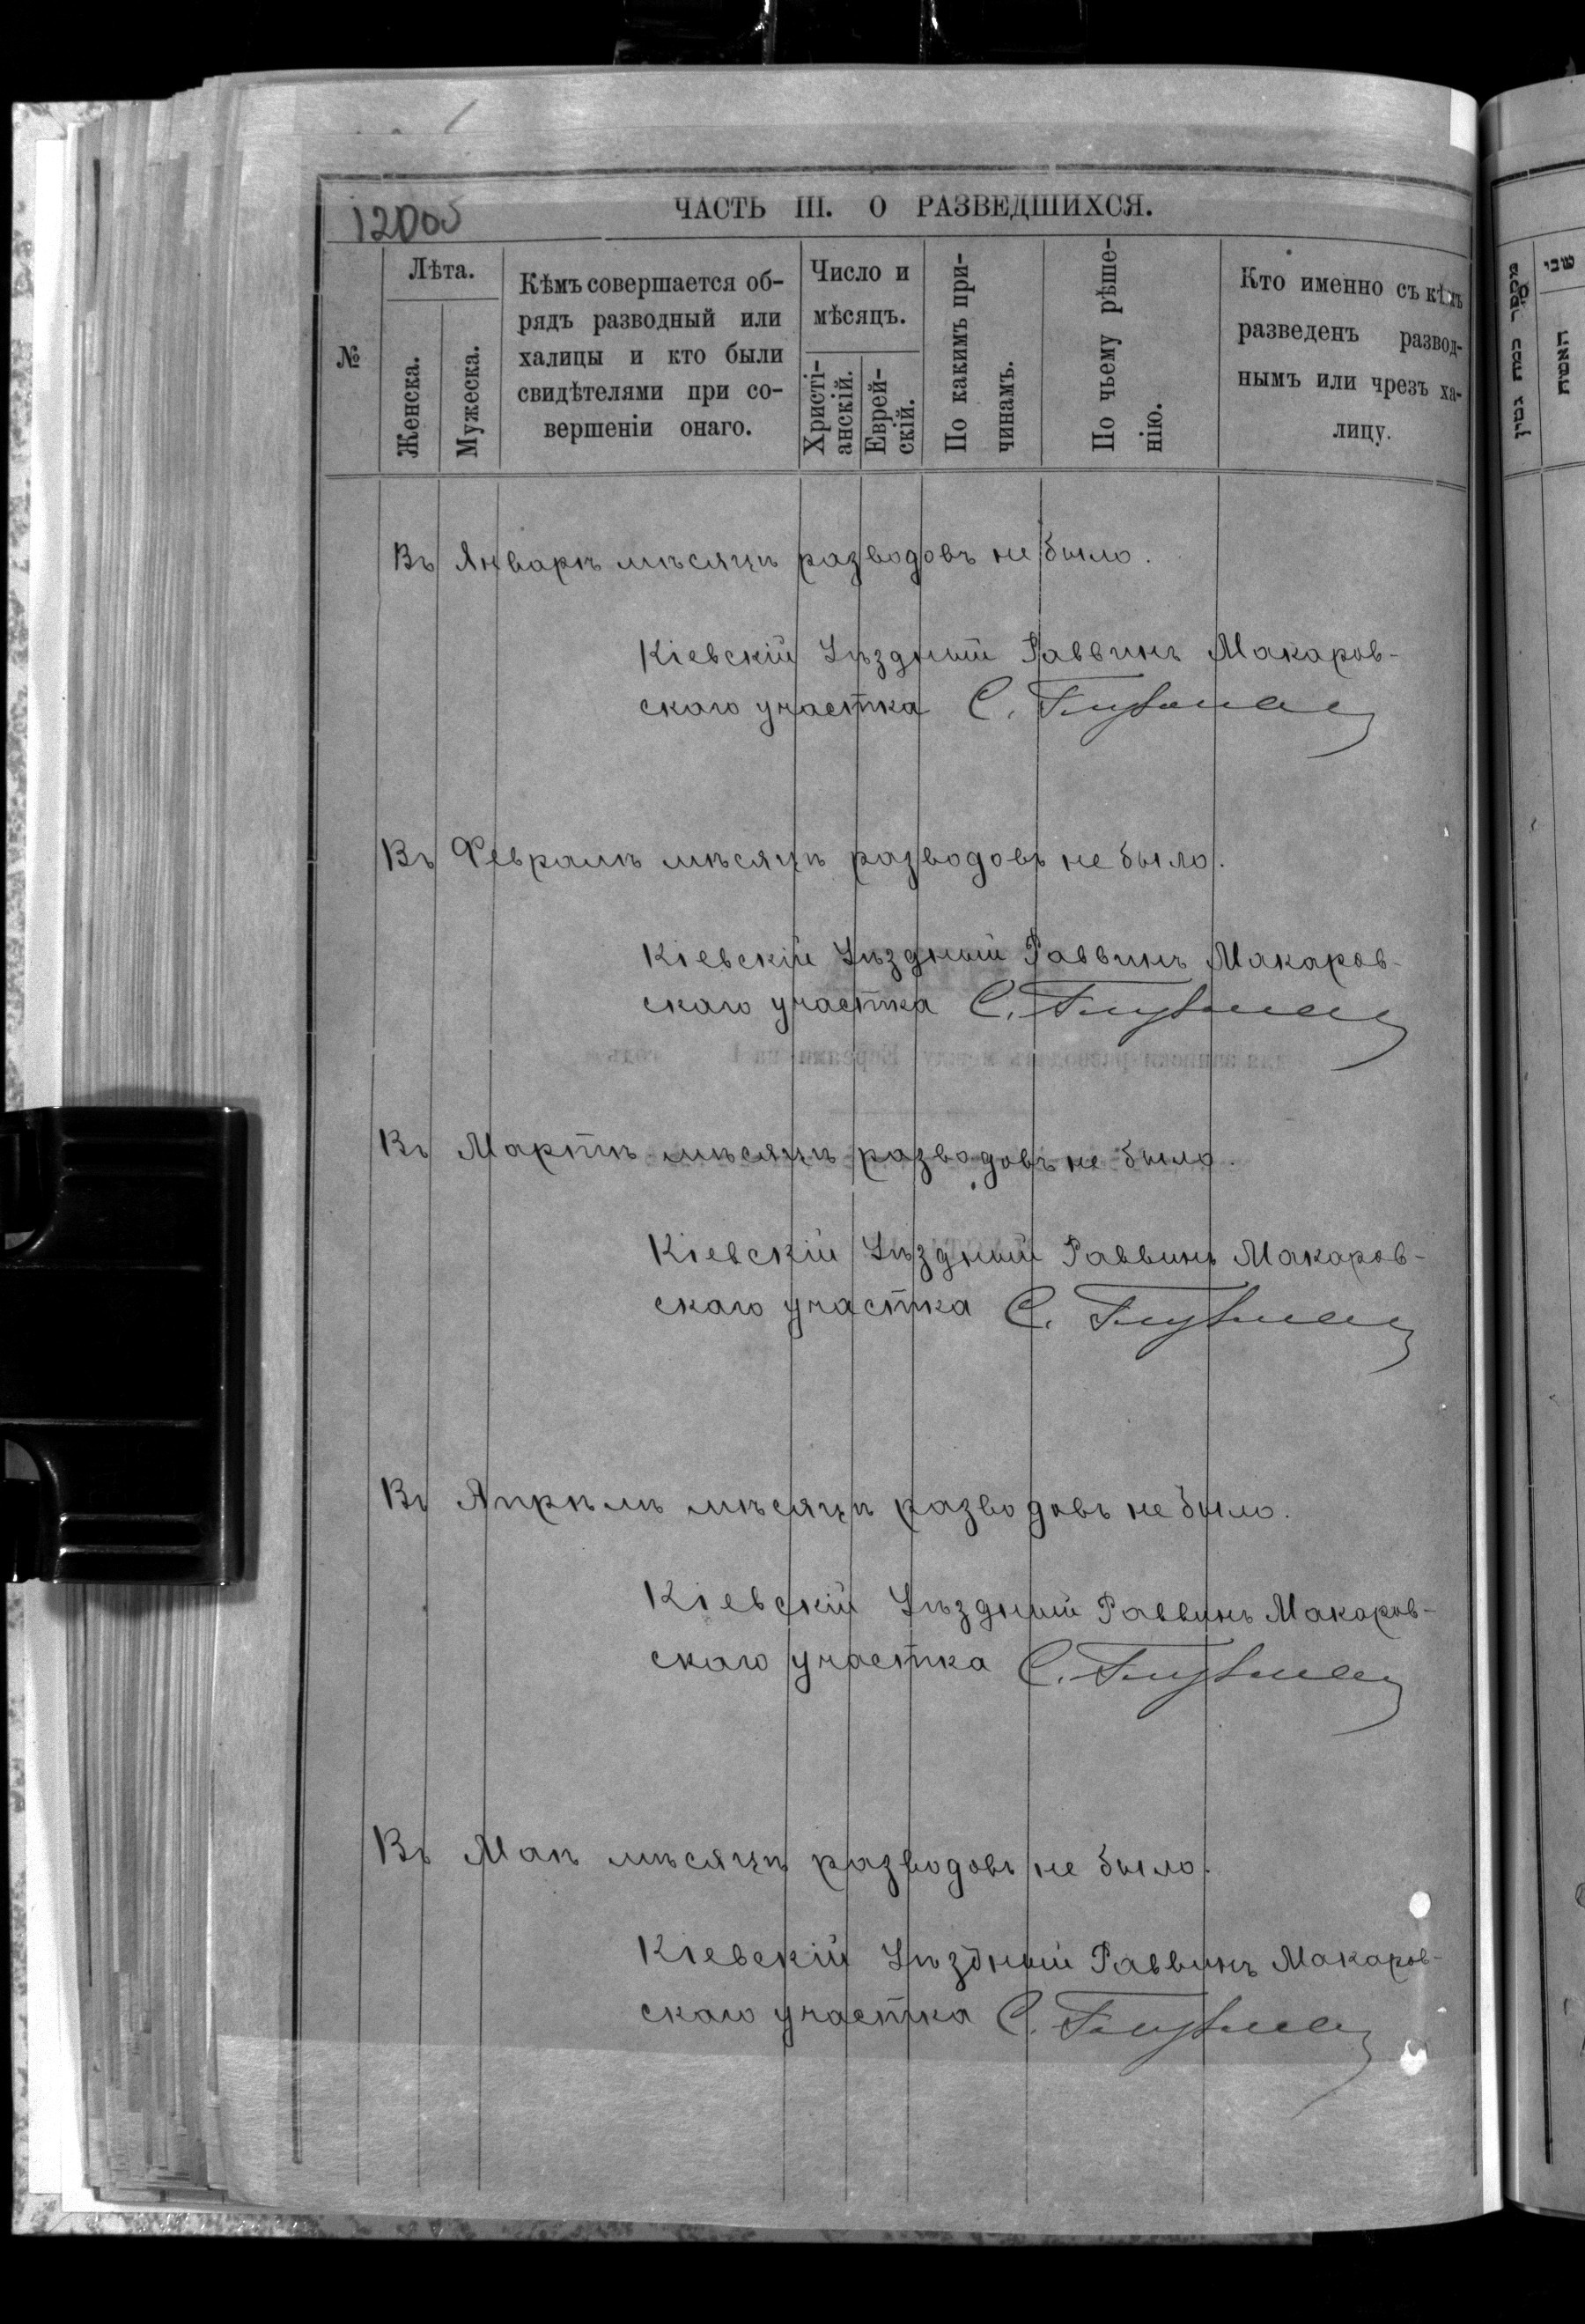 12005
ЧАСТЬ III. О РАЗВЕДШИХСЯ.
№
Лѣта.
Женска.
Мужеска.
Кѣмъ совершается об-
рядъ разводный или
халицы и кто были
свидѣтелями при со-
вершеніи онаго.
Число и
мѣсяцъ.
Христі-
анскій.
Еврей-
скій.
По какимъ при-
чинамъ.
По чьему рѣше-
нію.
Кто именно съ кѣмъ
разведенъ развод-
нымъ или чрезъ ха-
лицу.
Въ Январѣ мѣсяцѣ разводовъ не было.
Кіевскій Уѣздный Раввинъ Макаров-
скаго участка С.
Въ Февралѣ мѣсяцѣ разводовъ не было.
Кіевскій Уѣздный Раввинъ Макаров-
скаго участка С.
Въ Мартѣ мѣсяцѣ разводовъ не было.
Кіевскій Уѣздный Раввинъ Макаров-
скаго участка С.
Въ Апрѣлѣ мѣсяцѣ разводовъ не было.
Кіевскій Уѣздный Раввинъ Макаров-
скаго участка С.
Въ Маѣ мѣсяцѣ разводовъ не было.
Кіевскій Уѣздный Раввинъ Макаров-
скаго участка С.
מספר כמה גטין
שני
האשה